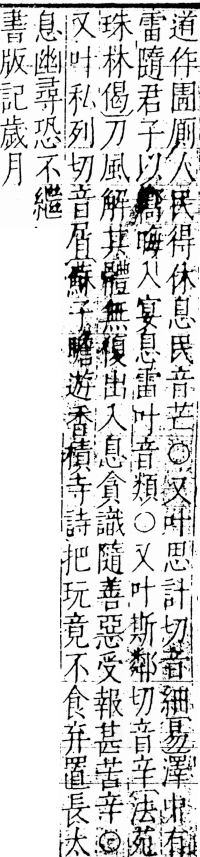 道作圊厠人民得休息民音芒○又叶思計切音細易澤中有
雷隨君子以嚮晦入宴息雷叶音類○又叶斯鄰切音辛法苑
珠林偈刀風解其體無復出入息貪識隨善惡受報甚苦辛○
又叶私列切音屑蘇子瞻遊香積寺詩把玩竟不食弃置長太
息幽尋恐不繼
書版記歲月